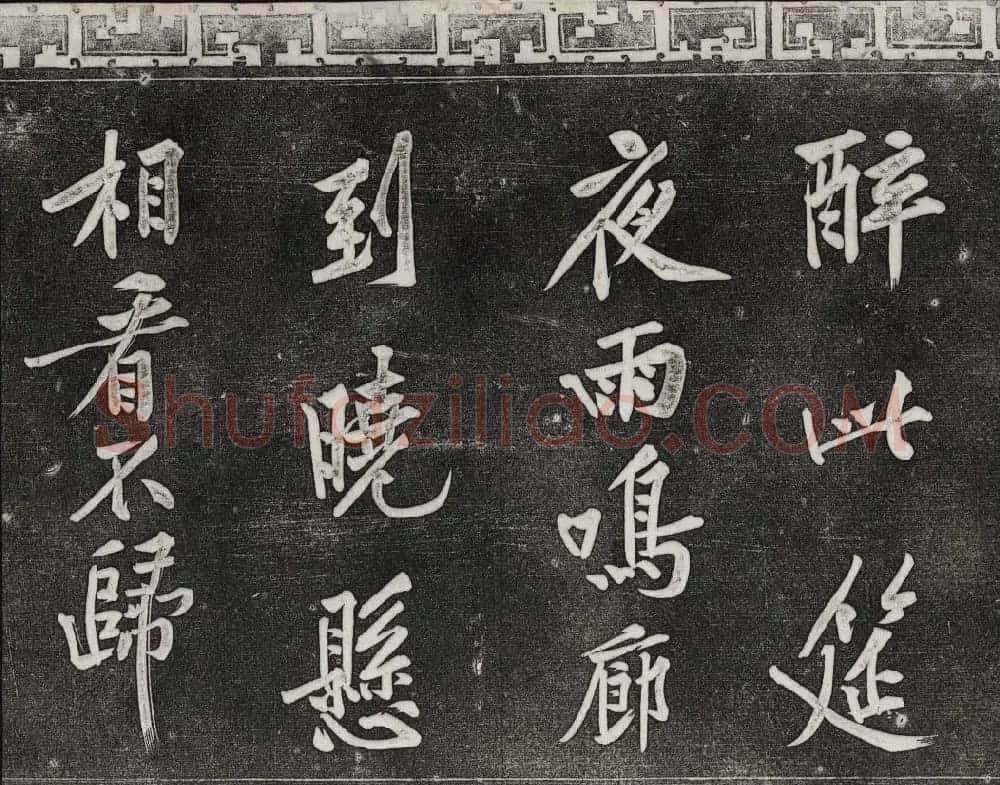 醉此筵
夜雨鳴廊
到曉懸
相看不歸
Shufaziliao.COM